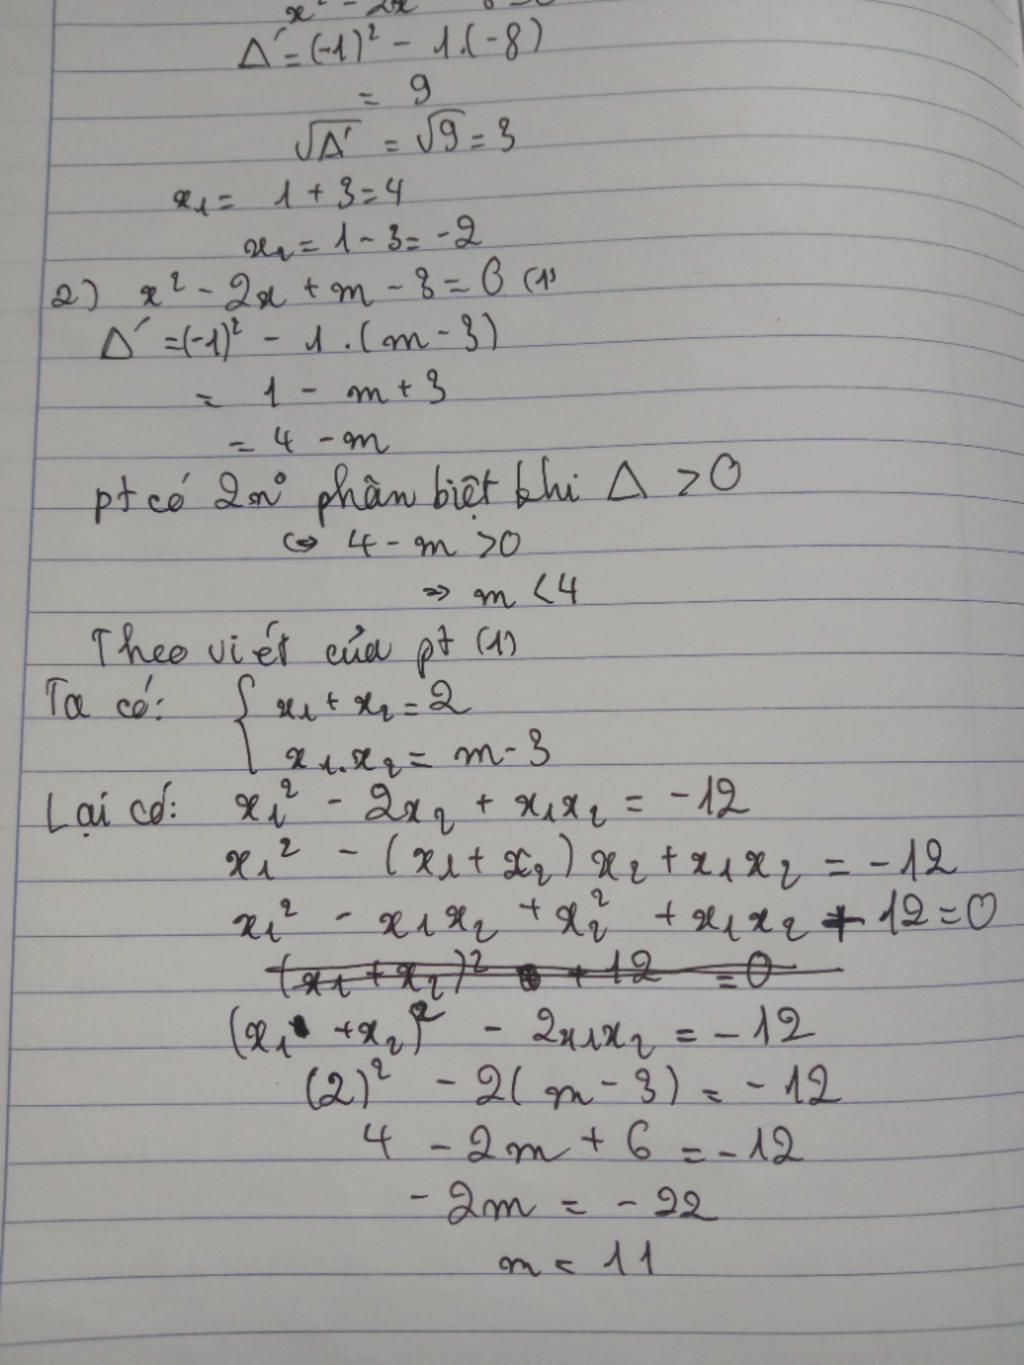 x² - 2x
Δ' = (-1)² - 1.(-8)
= 9
√Δ' = √9 = 3
x₁ = 1 + 3 = 4
x₂ = 1 - 3 = -2
2) x² - 2x + m - 3 = 0 (1)
Δ' = (-1)² - 1.(m - 3)
= 1 - m + 3
= 4 - m
pt có 2n⁰ phân biệt khi Δ > 0
⇔ 4 - m > 0
⇒ m < 4
Theo viét của pt (1)
Ta có: { x₁ + x₂ = 2
x₁.x₂ = m - 3
Lại có: x₁² - 2x₂ + x₁x₂ = -12
x₁² - (x₁ + x₂) x₂ + x₁x₂ = -12
x₁² - x₁x₂ + x₂² + x₁x₂ + 12 = 0
(x₁ + x₂)² + 12 = 0
(x₁ + x₂)² - 2x₁x₂ = -12
(2)² - 2(m - 3) = -12
4 - 2m + 6 = -12
-2m = -22
m = 11